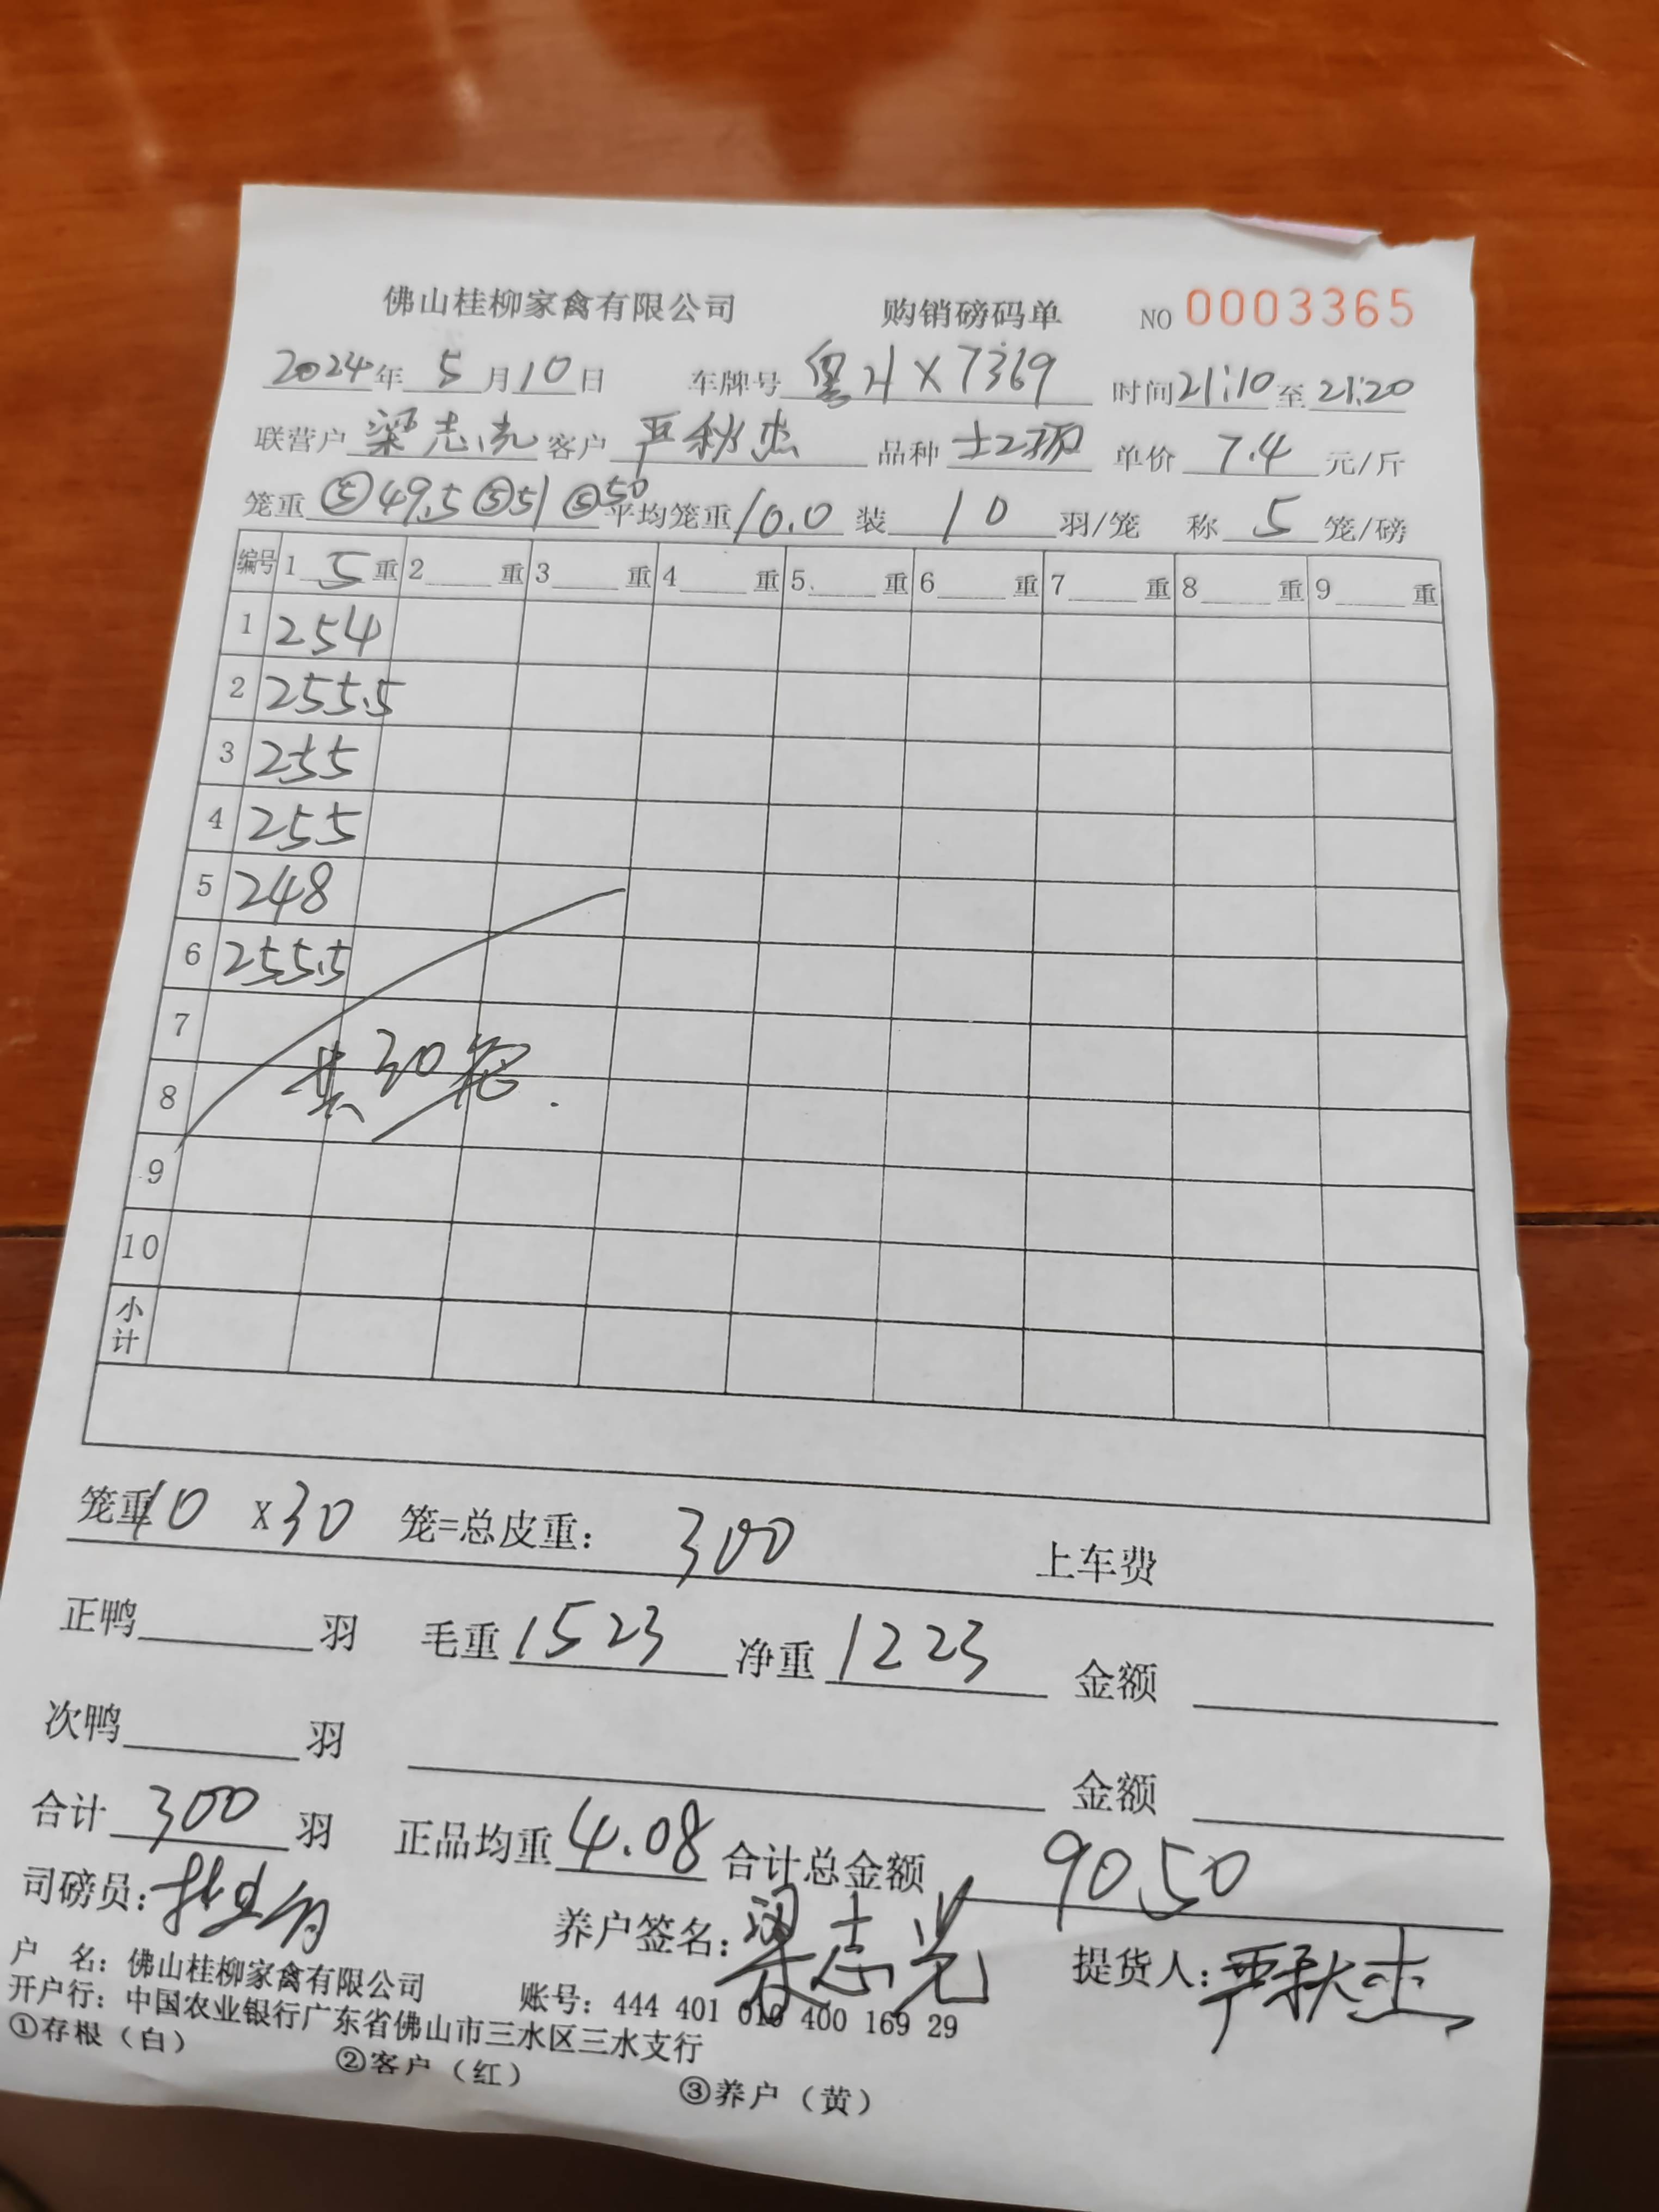 佛山桂柳家禽有限公司 购销磅码单 NO 0003365
2024年 5 月 10 日 车牌号 粤H X7369 时间 21:10 至 21:20
联营户 梁志光 客户 严秋杰 品种 单价 7.4 元/斤
笼重 ⑤49.5 ⑤51 ⑤50 平均笼重 10.0 装 10 羽/笼 称 5 笼/磅
编号 1 5 重 2 重 3 重 4 重 5 重 6 重 7 重 8 重 9 重
1 254
2 255.5
3 255
4 255
5 248
6 255.5
7
8 共30笼.
9
10
小计
笼重 10 X 30 笼=总皮重: 300 上车费
正鸭 羽 毛重 1523 净重 1223 金额
次鸭 羽 金额
合计 300 羽 正品均重 4.08 合计总金额 9050
司磅员: 养户签名: 梁志光 提货人: 严秋杰
户 名: 佛山桂柳家禽有限公司 账号: 444 401 010 400 169 29
开户行: 中国农业银行广东省佛山市三水区三水支行
①存根（白） ②客户（红） ③养户（黄）